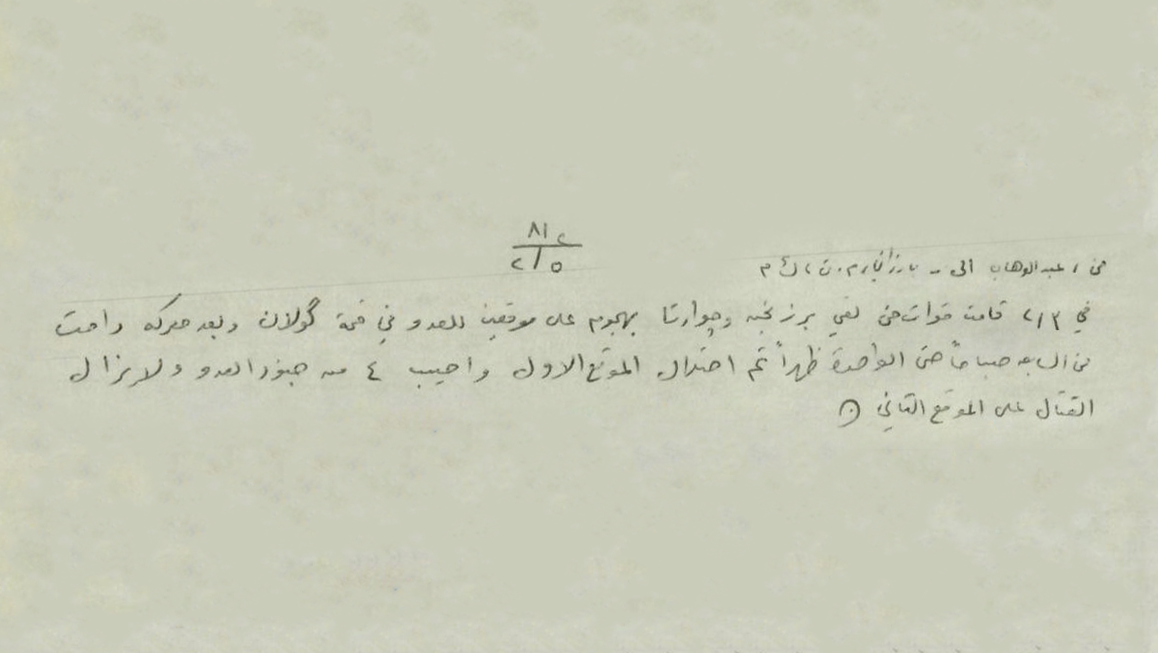 ٨١٢
٢/٥
من / عبد الوهاب الى - بارزاني، م. ت، ك م
في ٢/٣ قامت قوات من لقي برزنجه وچوارتا بهجوم على موقعين للعدو في قمة گولان وبعد معركه دامت
من السابعه صباحاً حتى الواحدة ظهراً تم احتلال الموقع الاول واصيب ٤ من جنود العدو ولايزال
القتال على الموقع الثاني